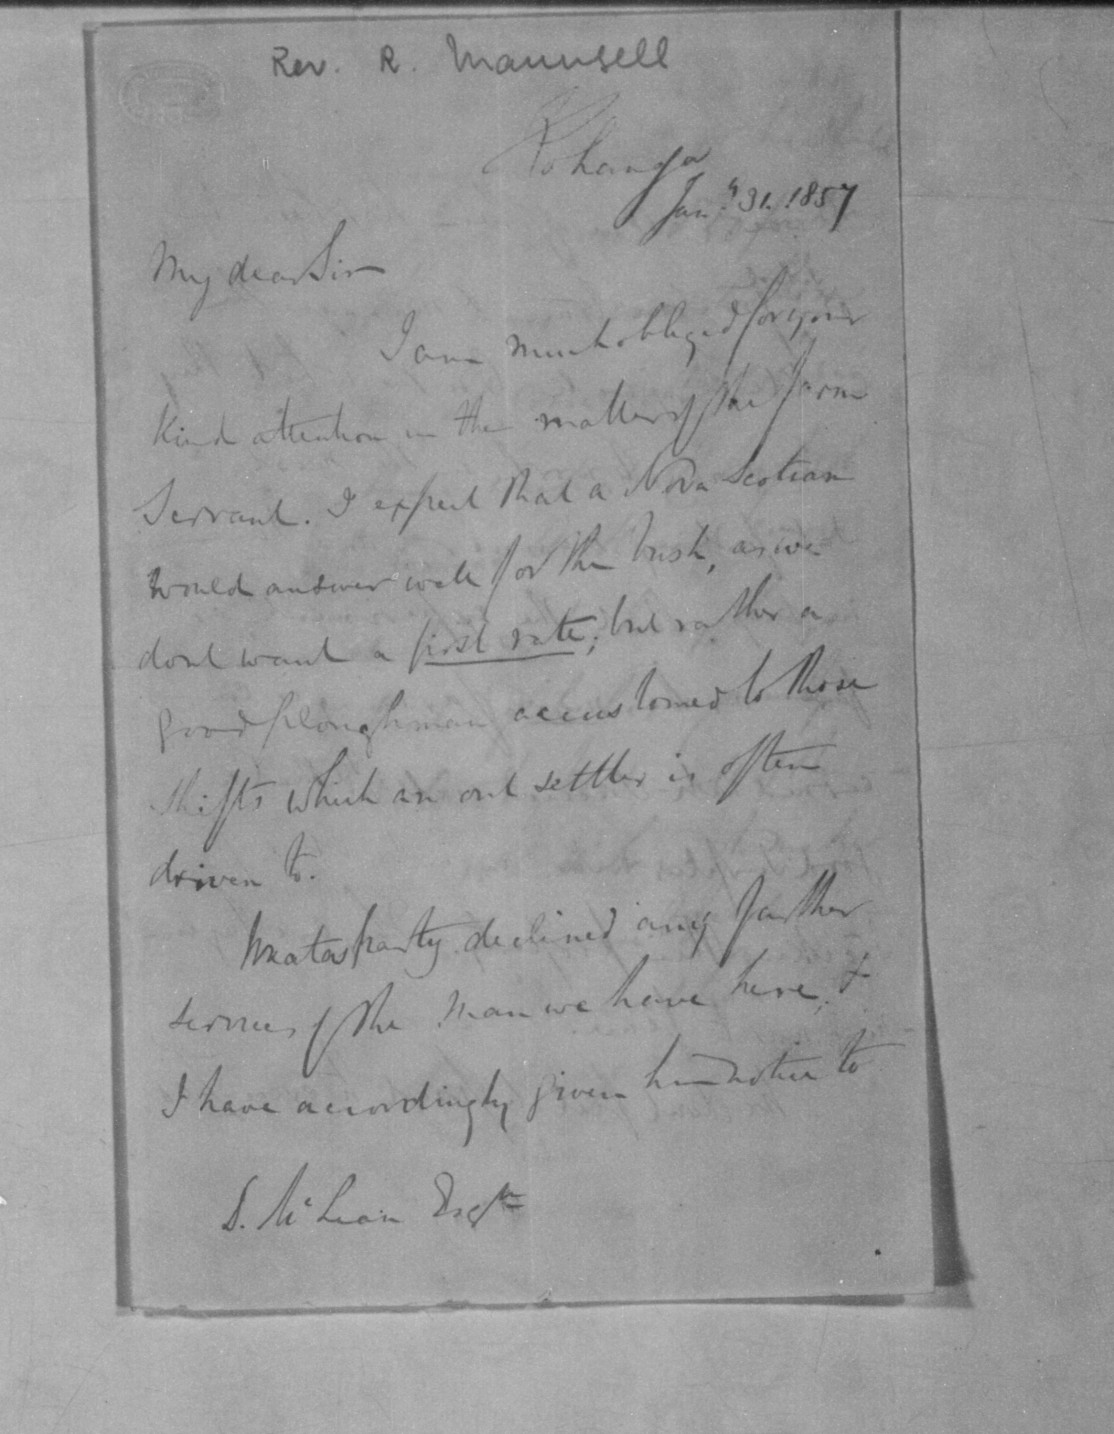 Rev. R. Maunsell
Kohanga
Jany 31. 1857
My dear Sir
I am much obliged for your
kind attention in the matter of the farm
Servant. I expect that a Nova Scotian
would answer well for the bush, as we
dont want a first rate; but rather a
good ploughman accustomed to those
shifts which an out settler is often
driven to.
declined any further
services of the man we have here, &
I have accordingly given him notice to
D. McLean Esqre